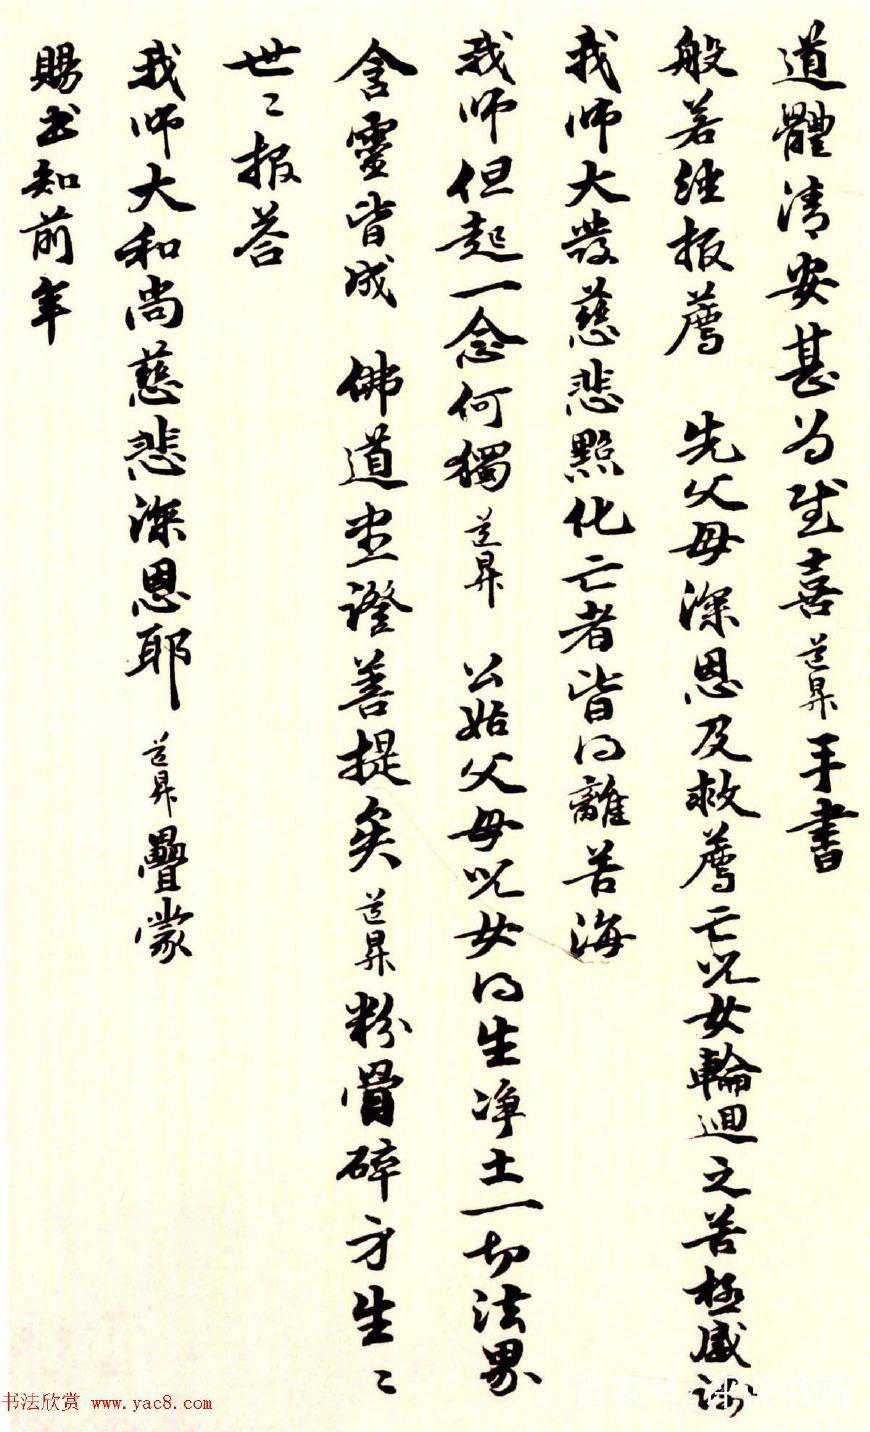 道體清安甚為慰喜道昇手書
般若經報薦 先父母深恩及救薦亡兒女輪迴之苦極感謝
我师大發慈悲點化亡者皆得離苦海
我师但起一念何獨道昇 公姑父母兒女得生净土一切法界
含靈皆成 佛道患證善提矣道昇粉骨碎身生〻
世〻报荅
我师大和尚慈悲深恩耶道昇疊蒙
賜书知前年
书法欣赏 www.yac8.com